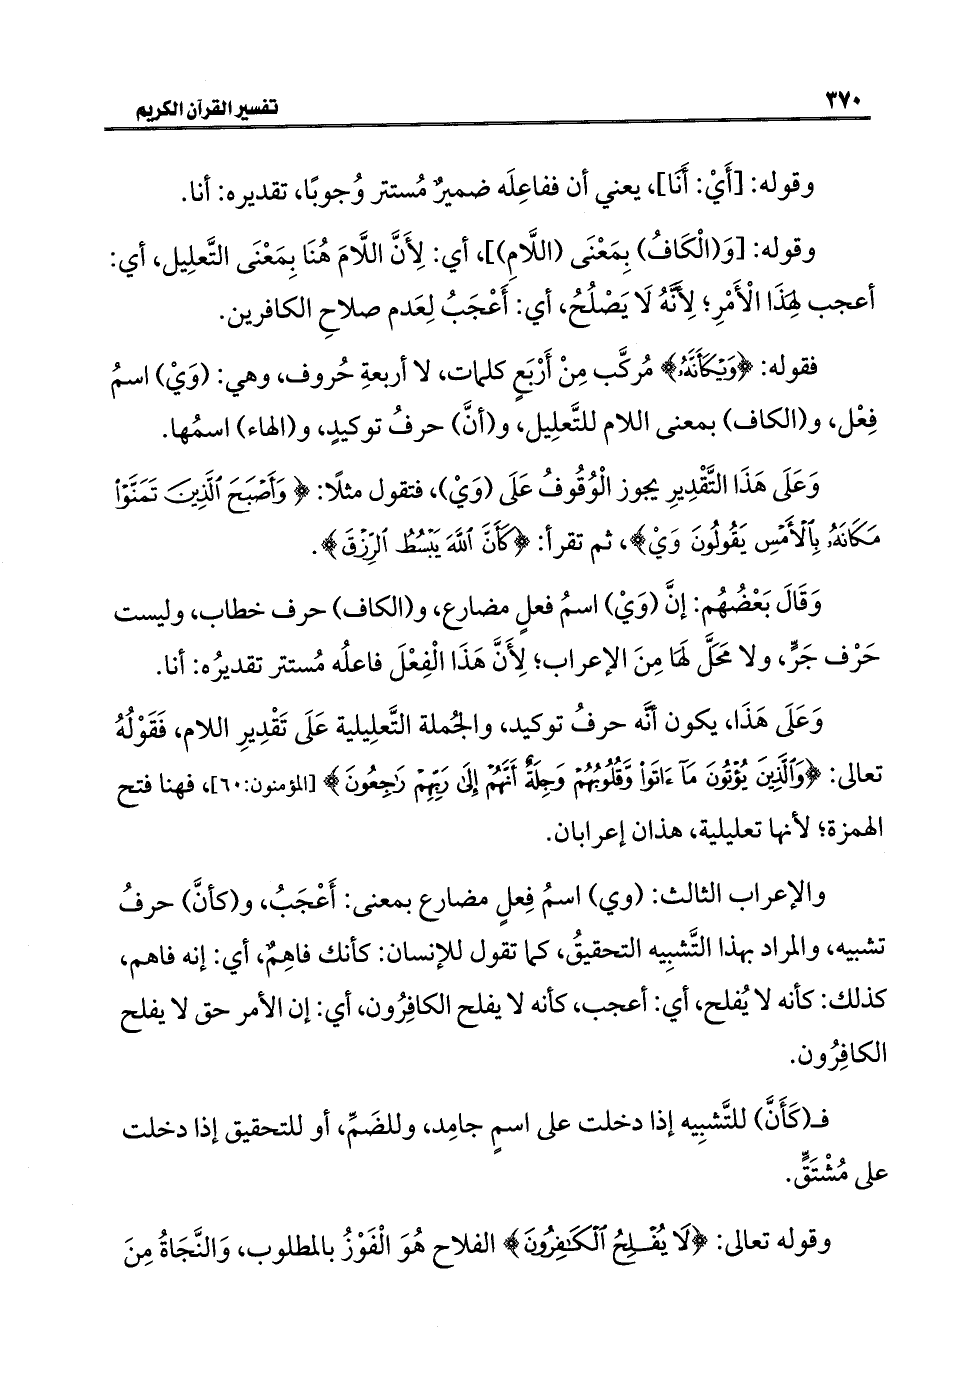 ٣٧٠
تفسير القرآن الكريم
وقوله: [أَيْ: أَنَا]، يعني أن ففاعِلَه ضميرٌ مُستتر وُجوبًا، تقديره: أنا.
وقوله: [وَ(الْكَافُ) بِمَعْنَى (اللَّامِ)]، أي: لِأَنَّ اللَّامَ هُنَا بِمَعْنَى التَّعلِيل، أي:
أعجب لِهَذَا الْأَمْرِ؛ لِأَنَّهُ لَا يَصْلُحُ، أي: أَعْجَبُ لِعَدم صلاحِ الكافرين.
فقوله: ﴿وَيْكَأَنَّهُۥ﴾ مُركَّب مِنْ أَرْبَعِ كلمات، لا أربعةِ حُروف، وهي: (وَيْ) اسمُ
فِعْل، و(الكاف) بمعنى اللام للتَّعلِيل، و(أنَّ) حرفُ توكيدٍ، و(الهاء) اسمُها.
وَعَلَى هَذَا التَّقْدِيرِ يجوز الْوُقُوفُ عَلَى (وَيْ)، فتقول مثلًا: ﴿وَأَصْبَحَ ٱلَّذِينَ تَمَنَّوْا۟
مَكَانَهُۥ بِٱلْأَمْسِ يَقُولُونَ وَيْ﴾، ثم تقرأ: ﴿كَأَنَّ ٱللَّهَ يَبْسُطُ ٱلرِّزْقَ﴾.
وَقَالَ بَعْضُهُم: إنَّ (وَيْ) اسمُ فعلٍ مضارع، و(الكاف) حرف خطاب، وليست
حَرْف جَرٍّ، ولا مَحَلَّ لَهَا مِنَ الإعراب؛ لِأَنَّ هَذَا الْفِعْلَ فاعلُه مُستتر تقديرُه: أنا.
وَعَلَى هَذَا، يكون أنَّه حرفُ توكيد، والجُملة التَّعلِيلية عَلَى تَقْدِيرِ اللام، فَقَوْلُهُ
تعالى: ﴿وَٱلَّذِينَ يُؤْتُونَ مَآ ءَاتَوا۟ وَّقُلُوبُهُمْ وَجِلَةٌ أَنَّهُمْ إِلَىٰ رَبِّهِمْ رَٰجِعُونَ﴾ [المؤمنون:٦٠]، فهنا فتح
الهمزة؛ لأنها تعليلية، هذان إعرابان.
والإعراب الثالث: (وي) اسمُ فِعلٍ مضارع بمعنى: أَعْجَبُ، و(كأنَّ) حرفُ
تشبيه، والمراد بهذا التَّشبِيه التحقيقُ، كما تقول للإنسان: كأنك فاهِمٌ، أي: إنه فاهم،
كذلك: كأنه لا يُفلح، أي: أعجب، كأنه لا يفلح الكافِرُون، أي: إن الأمر حق لا يفلح
الكافِرُون.
فـ(كَأَنَّ) للتَّشبِيه إذا دخلت على اسمٍ جامِد، وللضَمِّ، أو للتحقيق إذا دخلت
على مُشْتَقٍّ.
وقوله تعالى: ﴿لَا يُفْلِحُ ٱلْكَٰفِرُونَ﴾ الفلاح هُوَ الْفَوْزُ بالمطلوب، وَالنَّجَاةُ مِنَ